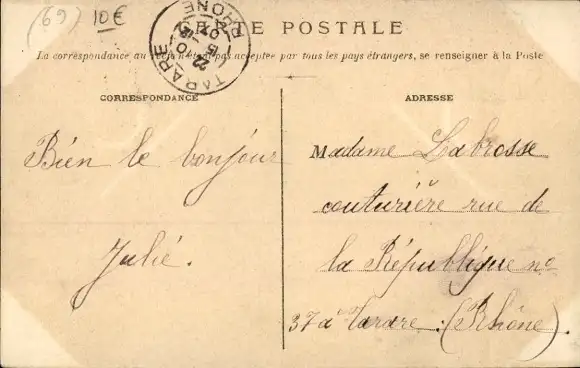 (69) 10€
CARTE POSTALE
La correspondance au recto n'est pas acceptée par tous les pays étrangers, se renseigner à la Poste
TARARE
RHONE
CORRESPONDANCE
ADRESSE
Bien le bonjour
Julié.
Madame Labrosse
couturière rue de
la République no
37 à Tarare. (Rhône)